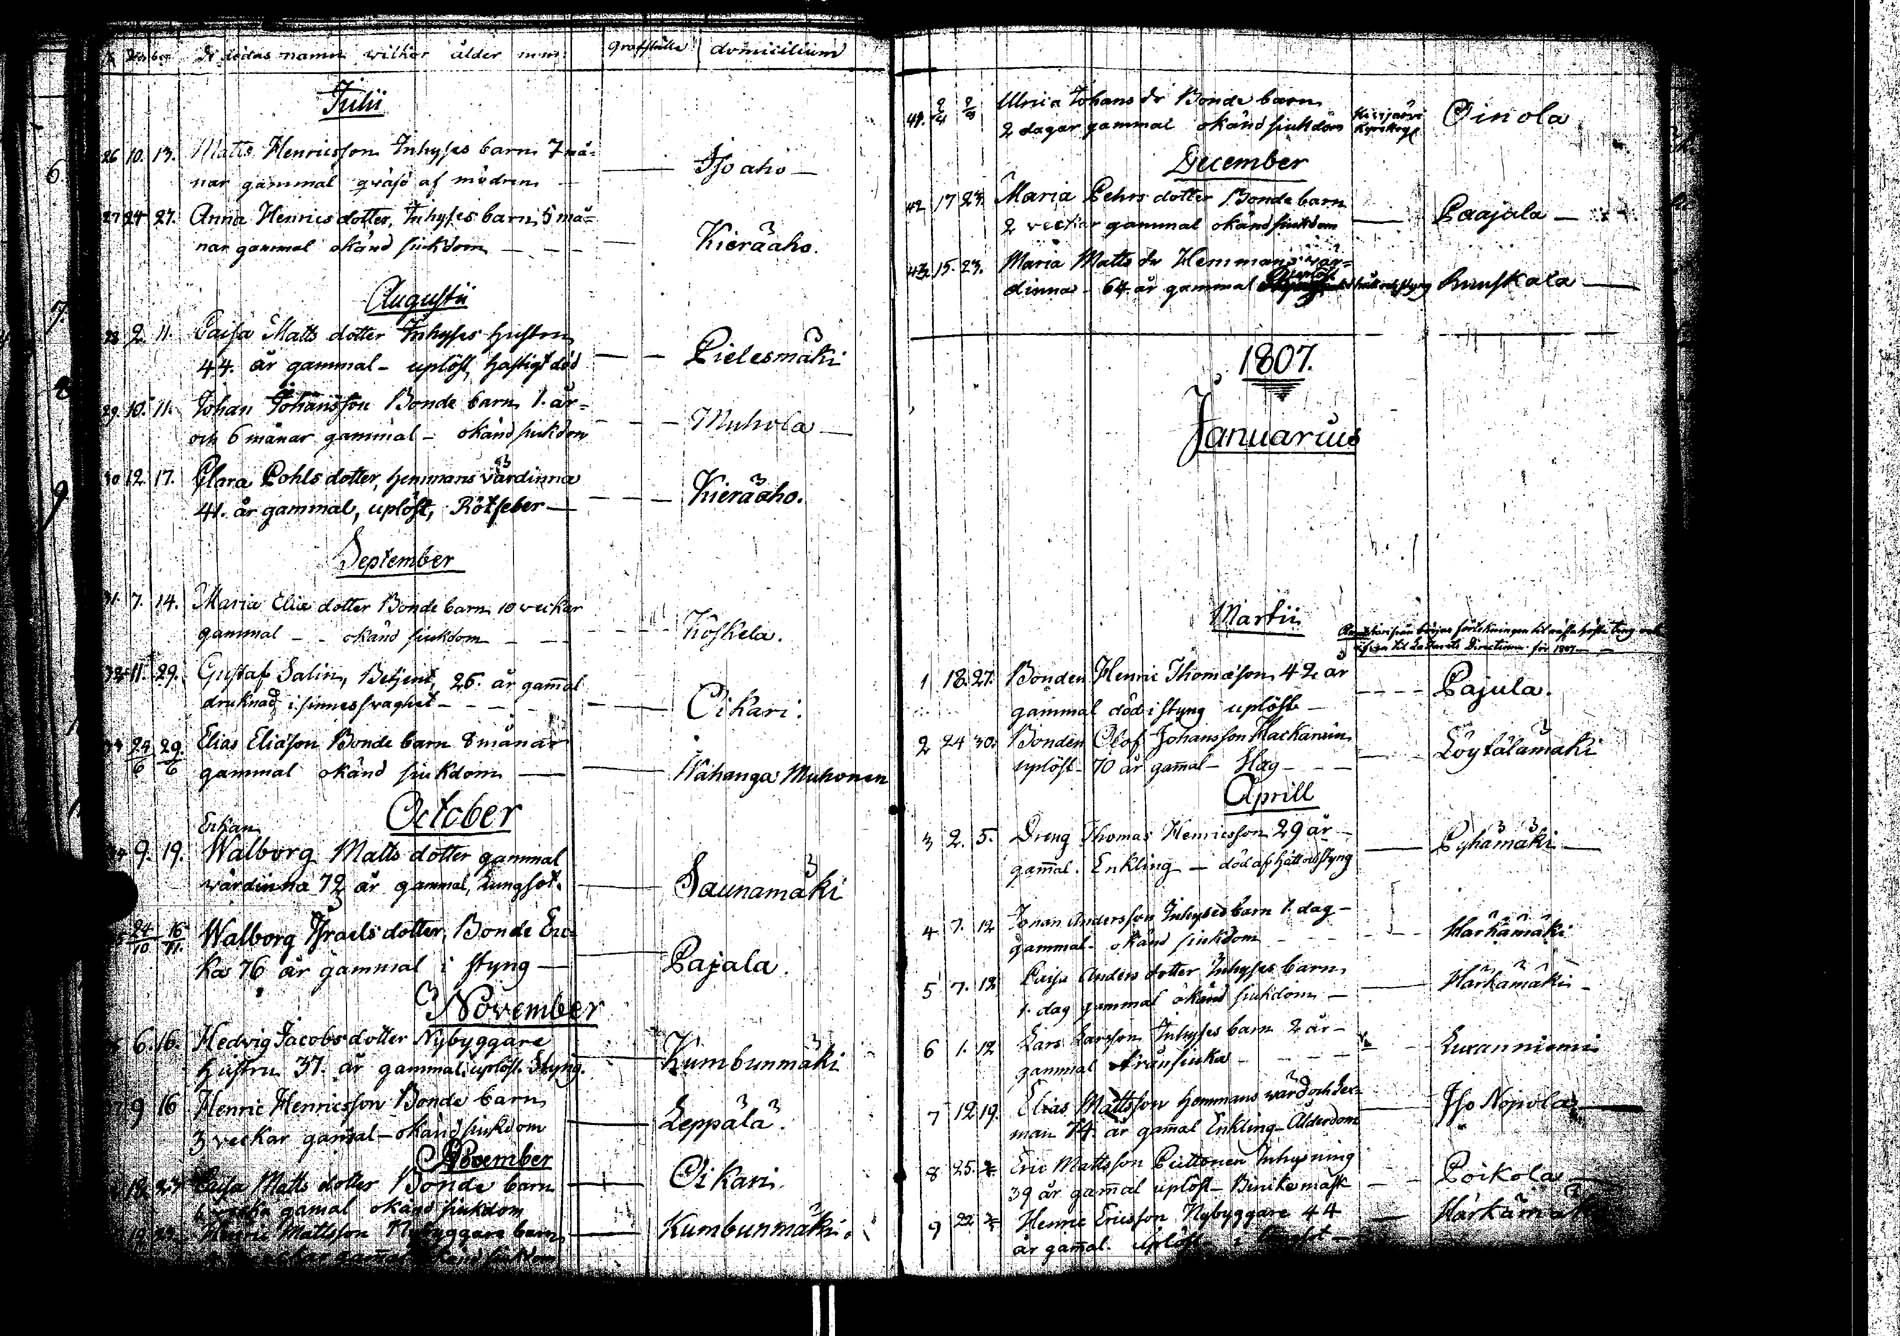 De dödas namn wilkor ålder m.m: grafställe domicilium
Julii
26 10. 13. Matts Henricsson Inhyses barn 7 må=
nar gammal qväfd af modren Iso aho
27 24 27. Anna Henrics dotter, Inhyses barn, 5 må=
nar gammal okänd siukdom Kieräaho.
Augustii
28 2. 11. Caisa Matts dotter Inhyses hustru
44. år gammal - uplöst, hastigt död Pielesmäki
29. 10. 11. Johan Johansson Bonde barn 1. år=
och 6 månar gammal - okänd siukdom Muhola
30 12. 17. Clara Pohls dotter, hemmans värdinna
41. år gammal, uplöst, Rötfeber Kieräaho.
September
31. 7. 14. Maria Elia dotter Bonde barn 10 veckor
gammal - - okänd siukdom Koskela.
32 11. 29. Gustaf Salin, Betjent, 26. år gam̄al
druknad i sinnessvaghet Oikari.
33 24/6 29/6 Elias Eliasson Bonde barn 8 månar
gammal okänd siukdom Wähanga Muhonen
October
Enkan
34 9. 19. Walborg Matts dotter gammal
wärdinna 72 år gammal, Lungsot. Saunamäki
35 24/10 16/11 Walborg Israels dotter, Bonde En=
ka 76 år gammal i styng Pajala.
November
6. 16. Hedvig Jacobs dotter Nybyggare
hustru 37. år gammal, uplöst. Styng. Kumbunmäki
37 9 16 Henric Henricsson Bonde barn
3 veckar gam̄al - okänd siukdom Leppälä.
November
12 23 Caisa Matts dotter Bonde barn
gamal okänd siukdom Oikari.
19 23 Henric Mattsson Nybyggare barn Kumbunmäki.
siukdom
41. Ulrica Johans dr Bonde barn
2 dagar gammal okänd siukdom Kivijärvi Oinola
December
42 17 23. Maria Pehrs dotter Bonde barn
2 veckar gammal okänd siukdom Paajala
43 15. 23. Maria Matts dr Hemmans wär=
dinna - 64 år gammal uplöst Ruuskala
1807.
Januarius
Martii
för 1807
1 18. 27. Bonden Henric Thomasson 42 år
gammal död i styng uplöst Pajula.
2 24 30. Bonden Olof Johansson Hackarain
uplöst - 70 år gam̄al - Slag Löytälämäki
Aprill
3 2. 5. Dreng Thomas Henricsson 29 år
gam̄al. Enkling - död af håll och styng Pyhämäki
4 7. 12 Johan Andersson Inhyses barn 1. dag
gammal - okänd siukdom Härkämäki
5 7. 12 Caisa Anders dotter Inhyses barn
1. dag gammal okänd siukdom Härkämäki
6 1. 12 Lars Larsson Inhyses barn 2 år
gammal Luranniemi
7 12 19. Elias Mattsson hemmans värd och Sex=
man 74. år gam̄al Enkling - Ålderdom Iso Nopola
8 25. Eric Mattsson Puttonen Inhysning
39 år gam̄al uplöst - Binike mask Poikola
9 22 Henric Ericsson Nybyggare 44
år gam̄al. uplöst Härkämäki